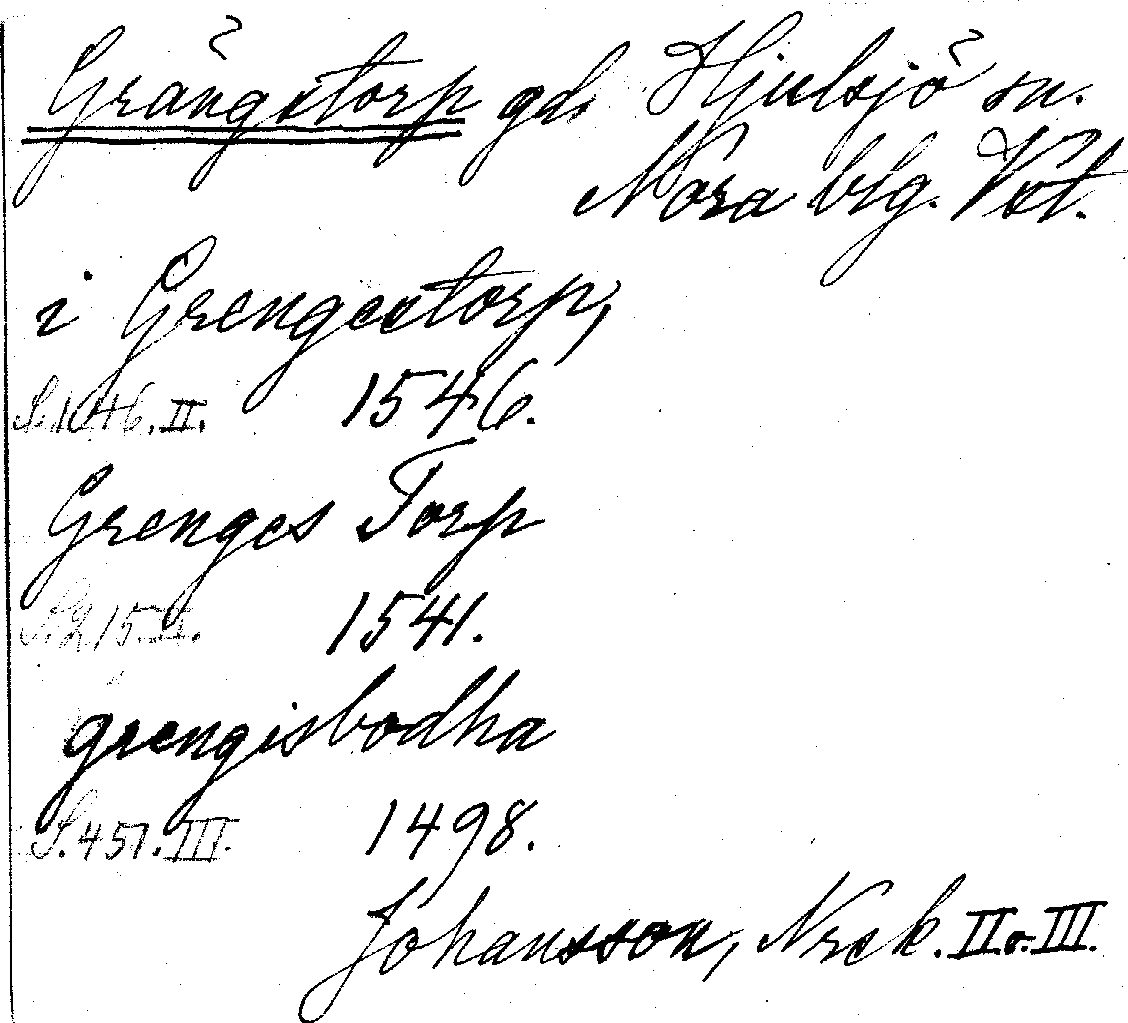 Grängstorp gd. Hjulsjö sn.
Nora blg. Vstl.
i Grengestorp,
S. 1046. II. 1546.
Grenges Torp
S. 215. II. 1541.
grengisbodha
S. 457. III. 1498.
Johansson, Nrsk. II o. III.